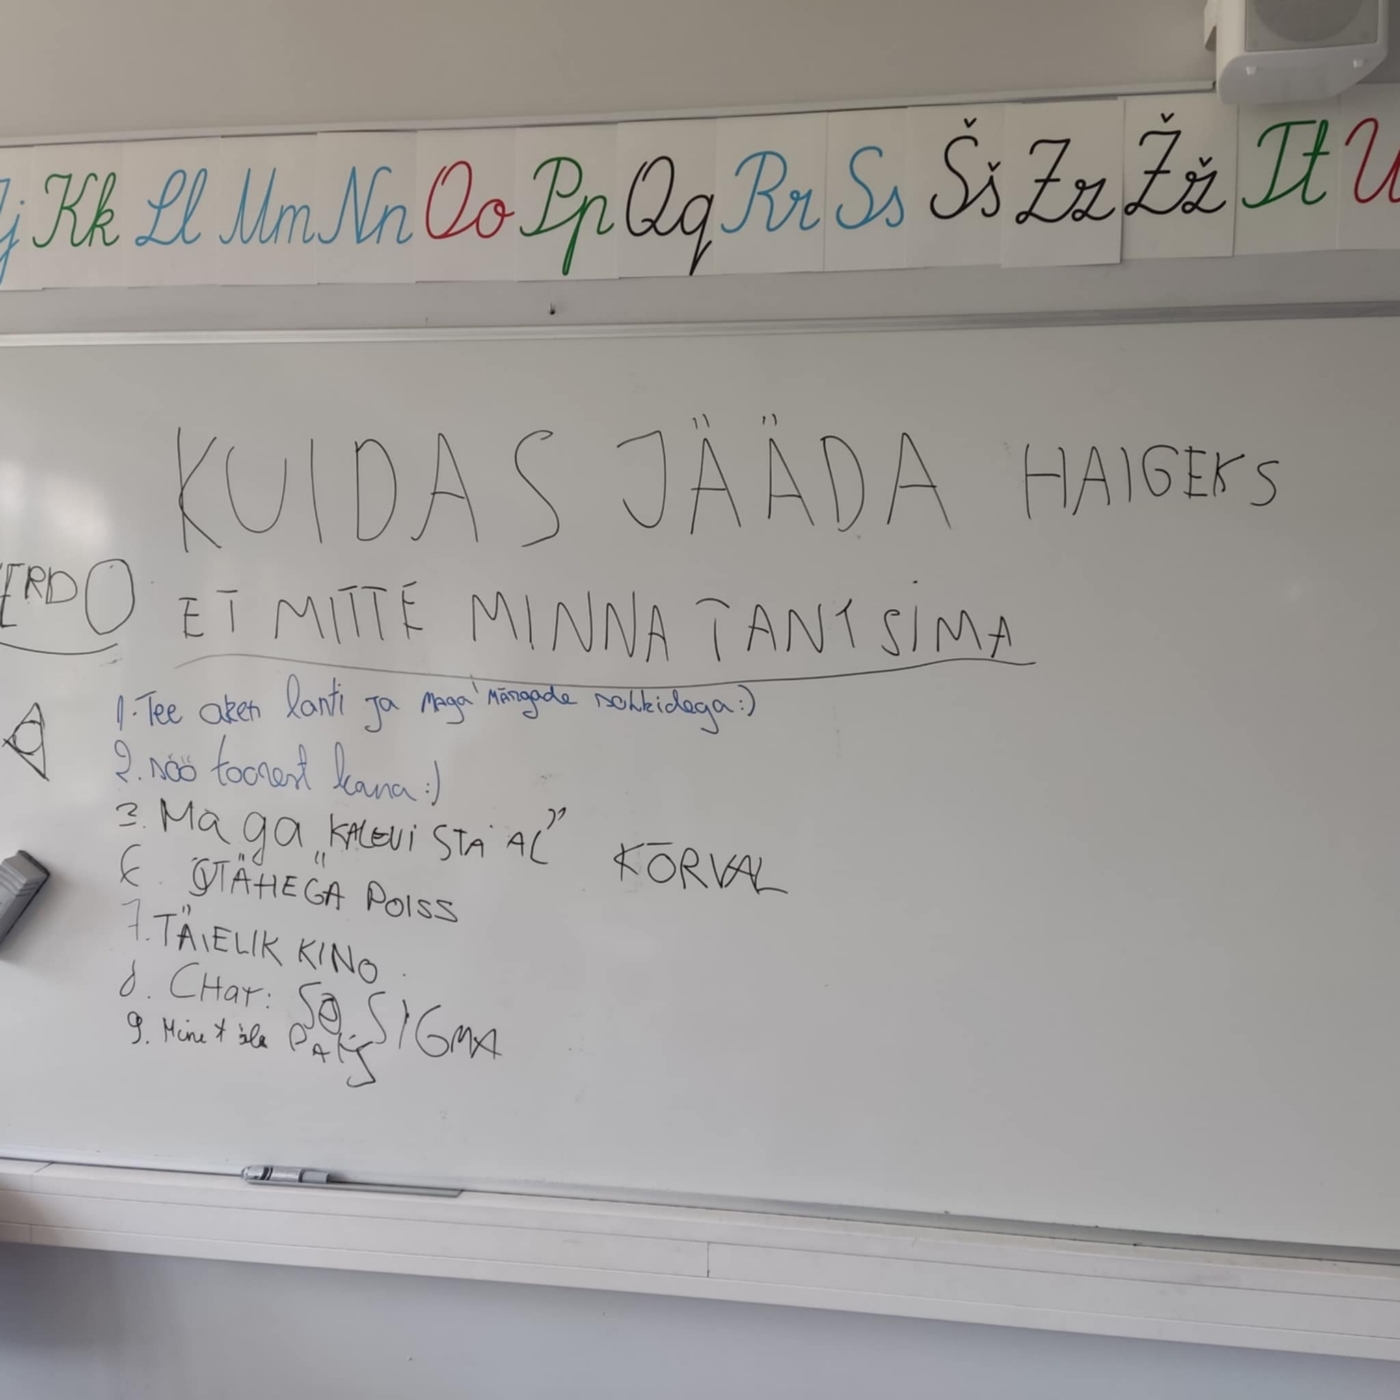 Kk Ll Mm Nn Oo Pp Qq Rr Ss Šš Zz Žž Tt U
KUIDAS JÄÄDA HAIGEKS
ERDO
ET MITTE MINNA TANTSIMA
1. Tee aken lahti ja maga märgade sokkidega:)
2. söö toorest kana:)
3. Maga „KALEVI STA AL” KÕRVAL
6. TÄHEGA POISS
7. TÄIELIK KINO.
8. CHAT: SA SIGMA
9. Mine